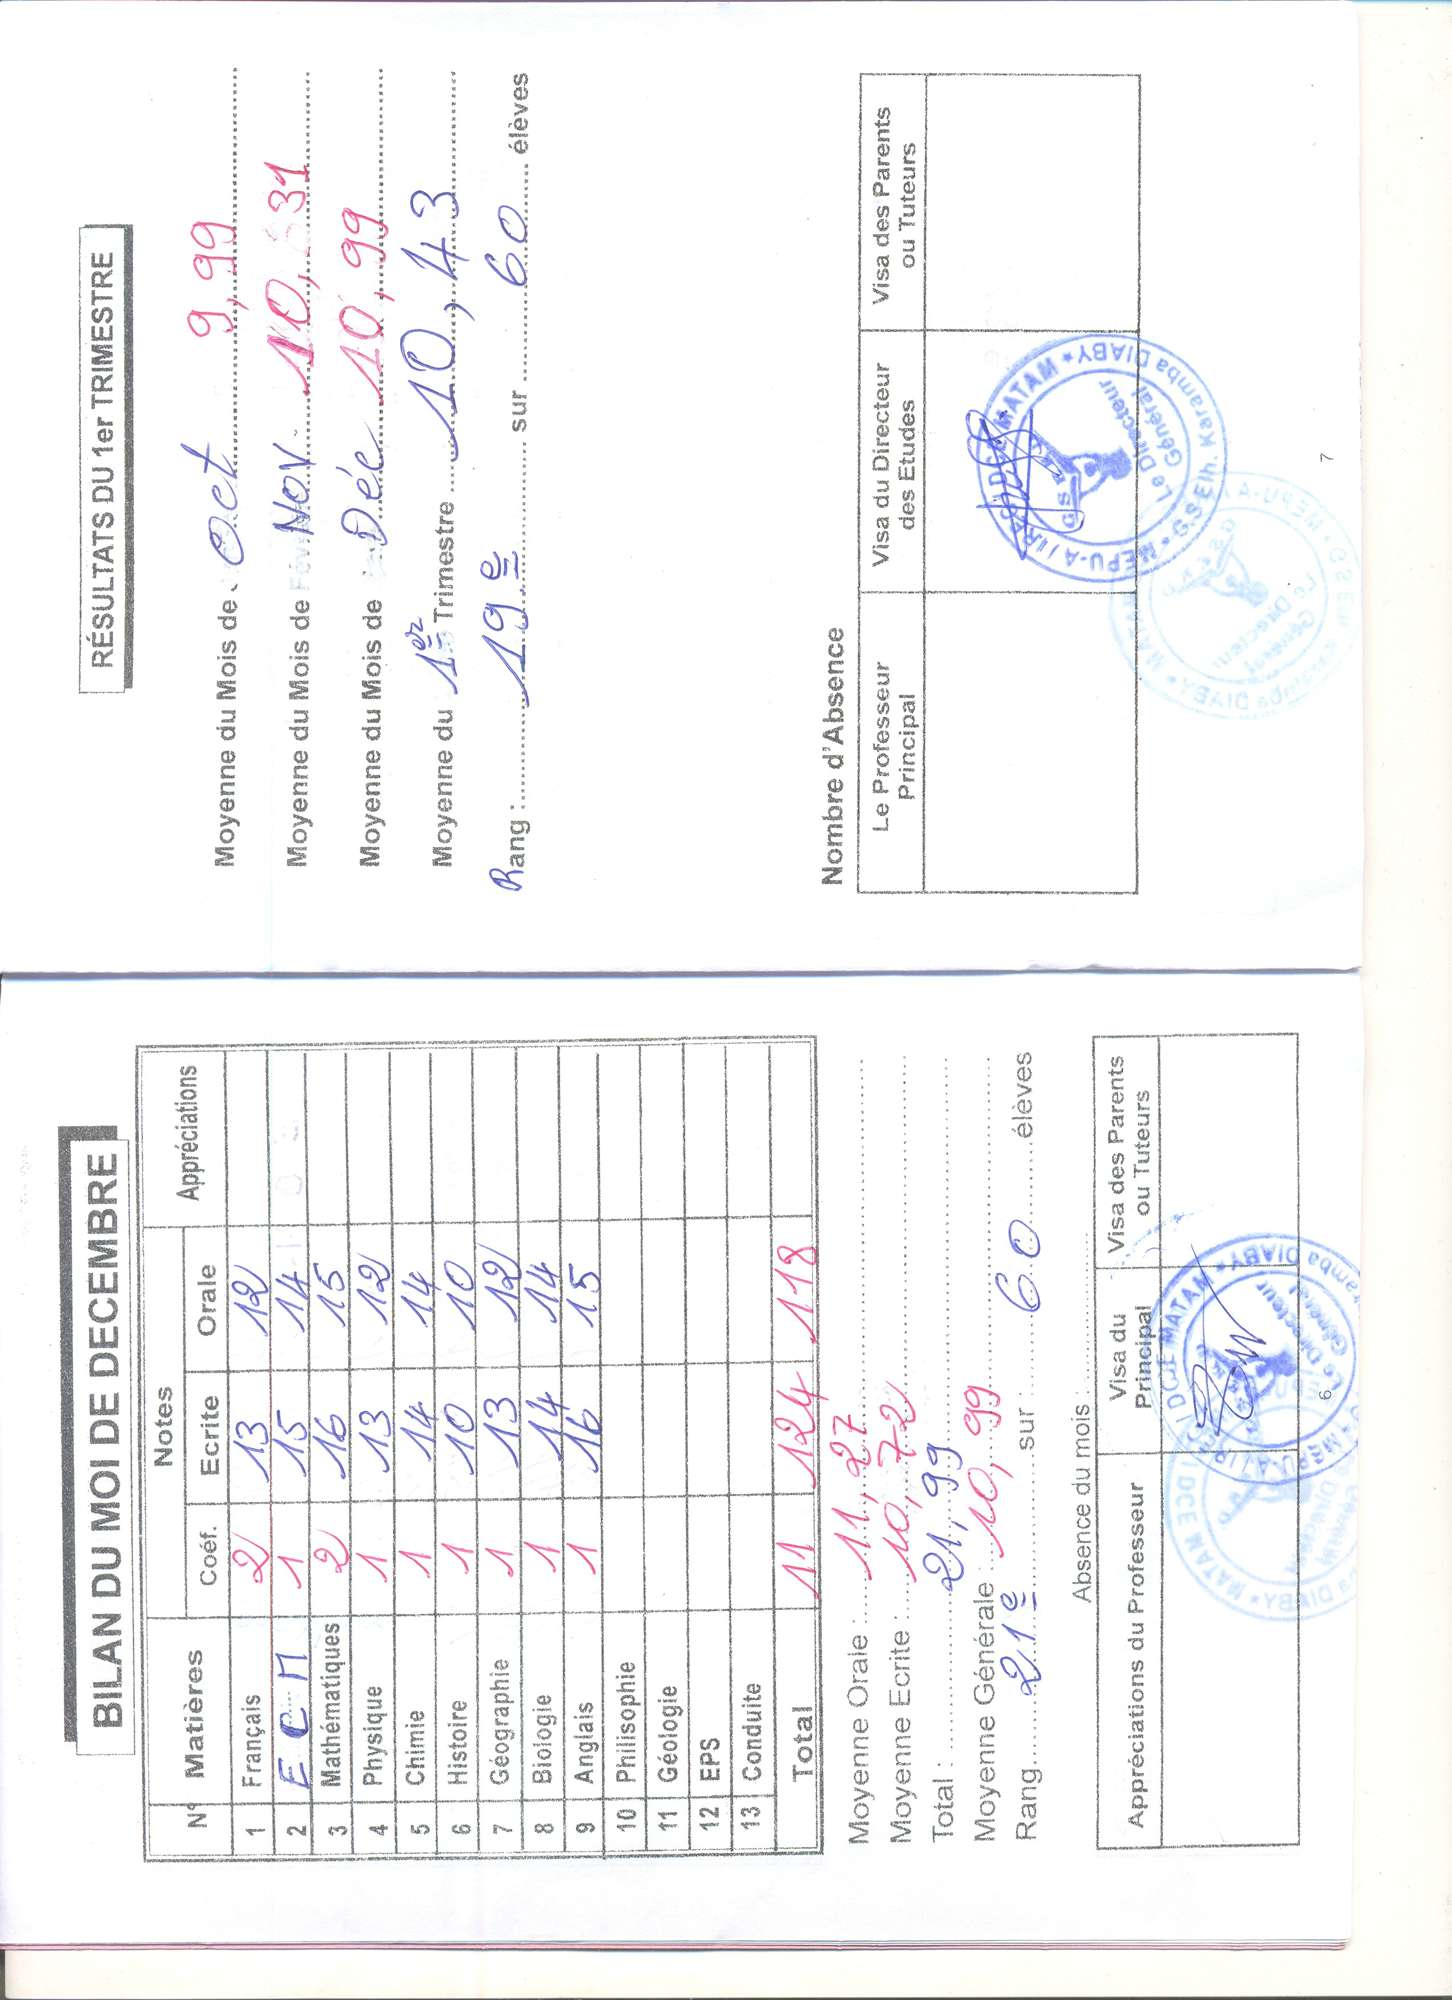 BILAN DU MOI DE DECEMBRE
N° Matières Notes Appréciations
Coéf. Ecrite Orale
1 Français 2 13 12
2 E C M 1 15 14
3 Mathématiques 2 16 15
4 Physique 1 13 12
5 Chimie 1 14 14
6 Histoire 1 10 10
7 Géographie 1 13 12
8 Biologie 1 14 14
9 Anglais 1 16 15
10 Philisophie
11 Géologie
12 EPS
13 Conduite
Total 11 124 118
Moyenne Orale : 11,27
Moyenne Ecrite : 10,72
Total : 21,99
Moyenne Générale : 10,99
Rang 21e sur : 60 élèves
Absence du mois :
Appréciations du Professeur
Visa du Principal
Visa des Parents ou Tuteurs
6
RÉSULTATS DU 1er TRIMESTRE
Moyenne du Mois de Oct 9,99
Moyenne du Mois de Nov 10,31
Moyenne du Mois de Déc 10,99
Moyenne du 1er Trimestre 10,43
Rang : 19e sur 60 élèves
Nombre d'Absence
Le Professeur Principal
Visa du Directeur des Etudes
Visa des Parents ou Tuteurs
MATAM * G.S Elh. Karamba DIABY *
Le Directeur Général
7